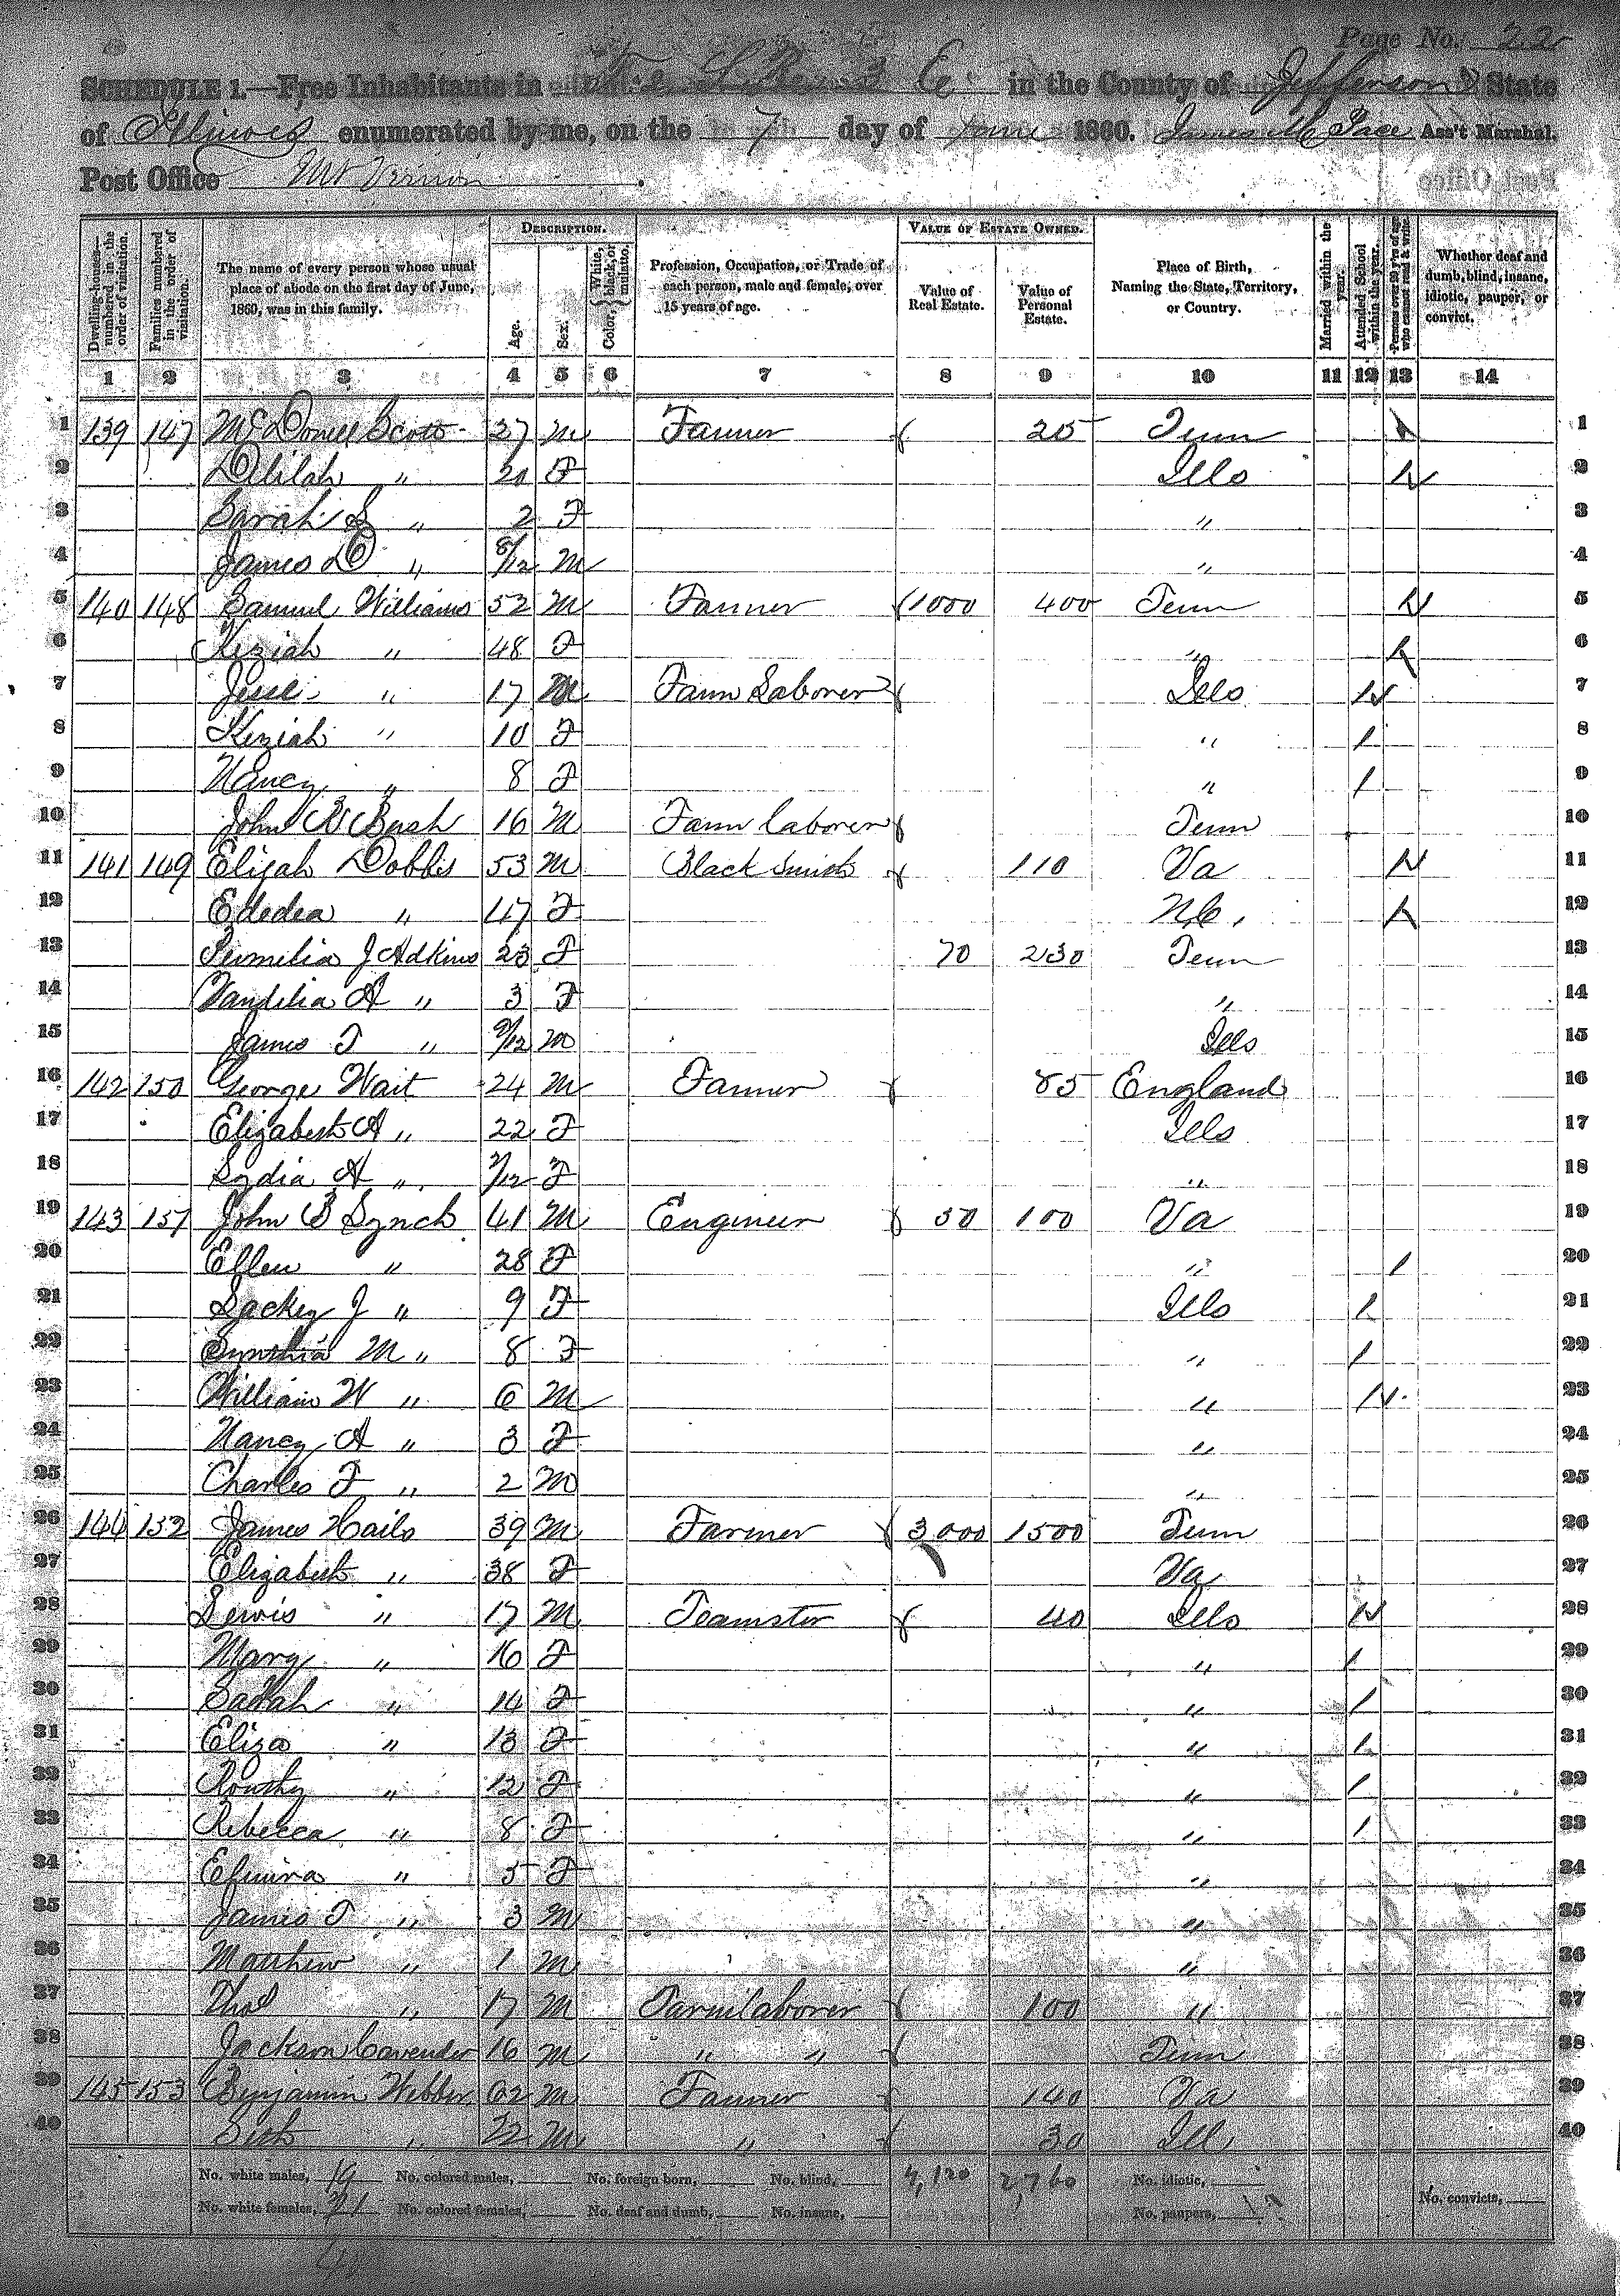 Page No. 22
SCHEDULE 1.—Free Inhabitants in in the County of Jefferson State
of Illinois enumerated by me, on the 7 day of June 1860. James M Pace Ass't Marshal.
Post Office Mt Vernon.
DESCRIPTION. VALUE OF ESTATE OWNED.
Dwelling-houses—numbered in the order of visitation. Families numbered in the order of visitation. The name of every person whose usual place of abode on the first day of June, 1860, was in this family. Age. Sex. Color, White, black, or mulatto. Profession, Occupation, or Trade of each person, male and female, over 15 years of age. Value of Real Estate. Value of Personal Estate. Place of Birth, Naming the State, Territory, or Country. Married within the year. Attended School within the year. Persons over 20 y'rs of age who cannot read & write. Whether deaf and dumb, blind, insane, idiotic, pauper, or convict.
1 2 3 4 5 6 7 8 9 10 11 12 13 14
1 139 147 McDonell Scott 27 M Farmer 25 Tenn 1
2 Delilah " 20 F Ills 2
3 Sarah S " 2 F " 3
4 James D " 8/12 M " 4
5 140 148 Samuel Williams 52 M Farmer 1000 400 Tenn 5
6 Keziah " 48 F " 6
7 Jesse " 17 M Farm Laborer Ills 7
8 Keziah " 10 F " / 8
9 Nancy " 8 F " / 9
10 John W Bush 16 M Farm laborer Tenn 10
11 141 149 Elijah Dobbs 53 M Black Smith 110 Va 11
12 Ededea " 47 F N.C. 12
13 J Adkins 23 F 70 230 Tenn 13
14 Vandelia A " 3 F " 14
15 James T " 9/12 M Ills 15
16 142 150 George Wait 24 M Farmer 85 England 16
17 Elizabeth A " 22 F Ills 17
18 Lydia A " /12 F " 18
19 143 151 John B Lynch 41 M Engineer 50 100 Va 19
20 Ellen " 28 F " / 20
21 Lackey J " 9 F Ills / 21
22 Cynthia M " 8 F " / 22
23 William W " 6 M " 23
24 Nancy A " 3 F " 24
25 Charles F " 2 M " 25
26 144 152 James Hails 39 M Farmer 3000 1500 Tenn 26
27 Elizabeth " 38 F Va 27
28 Lewis " 17 M Teamster 40 Ills 28
29 Mary " 16 F " / 29
30 Sarah " 14 F " / 30
31 Eliza " 13 F " / 31
32 " 12 F " / 32
33 Rebecca " 8 F " / 33
34 Elmira " 5 F " 34
35 James T " 3 M " 35
36 Matthew " 1 M " 36
37 " 17 M Farm laborer 100 " 37
38 Jackson Cavender 16 M " " Tenn 38
39 145 153 Benjamin Webber 62 M Farmer 140 Va 39
40 " 22 M " 30 Ill 40
No. white males, 19 No. colored males, No. foreign born, No. blind, 4,120 2,760 No. idiotic,
No. white females, 21 No. colored females, No. deaf and dumb, No. insane, No. paupers, No. convicts,
40